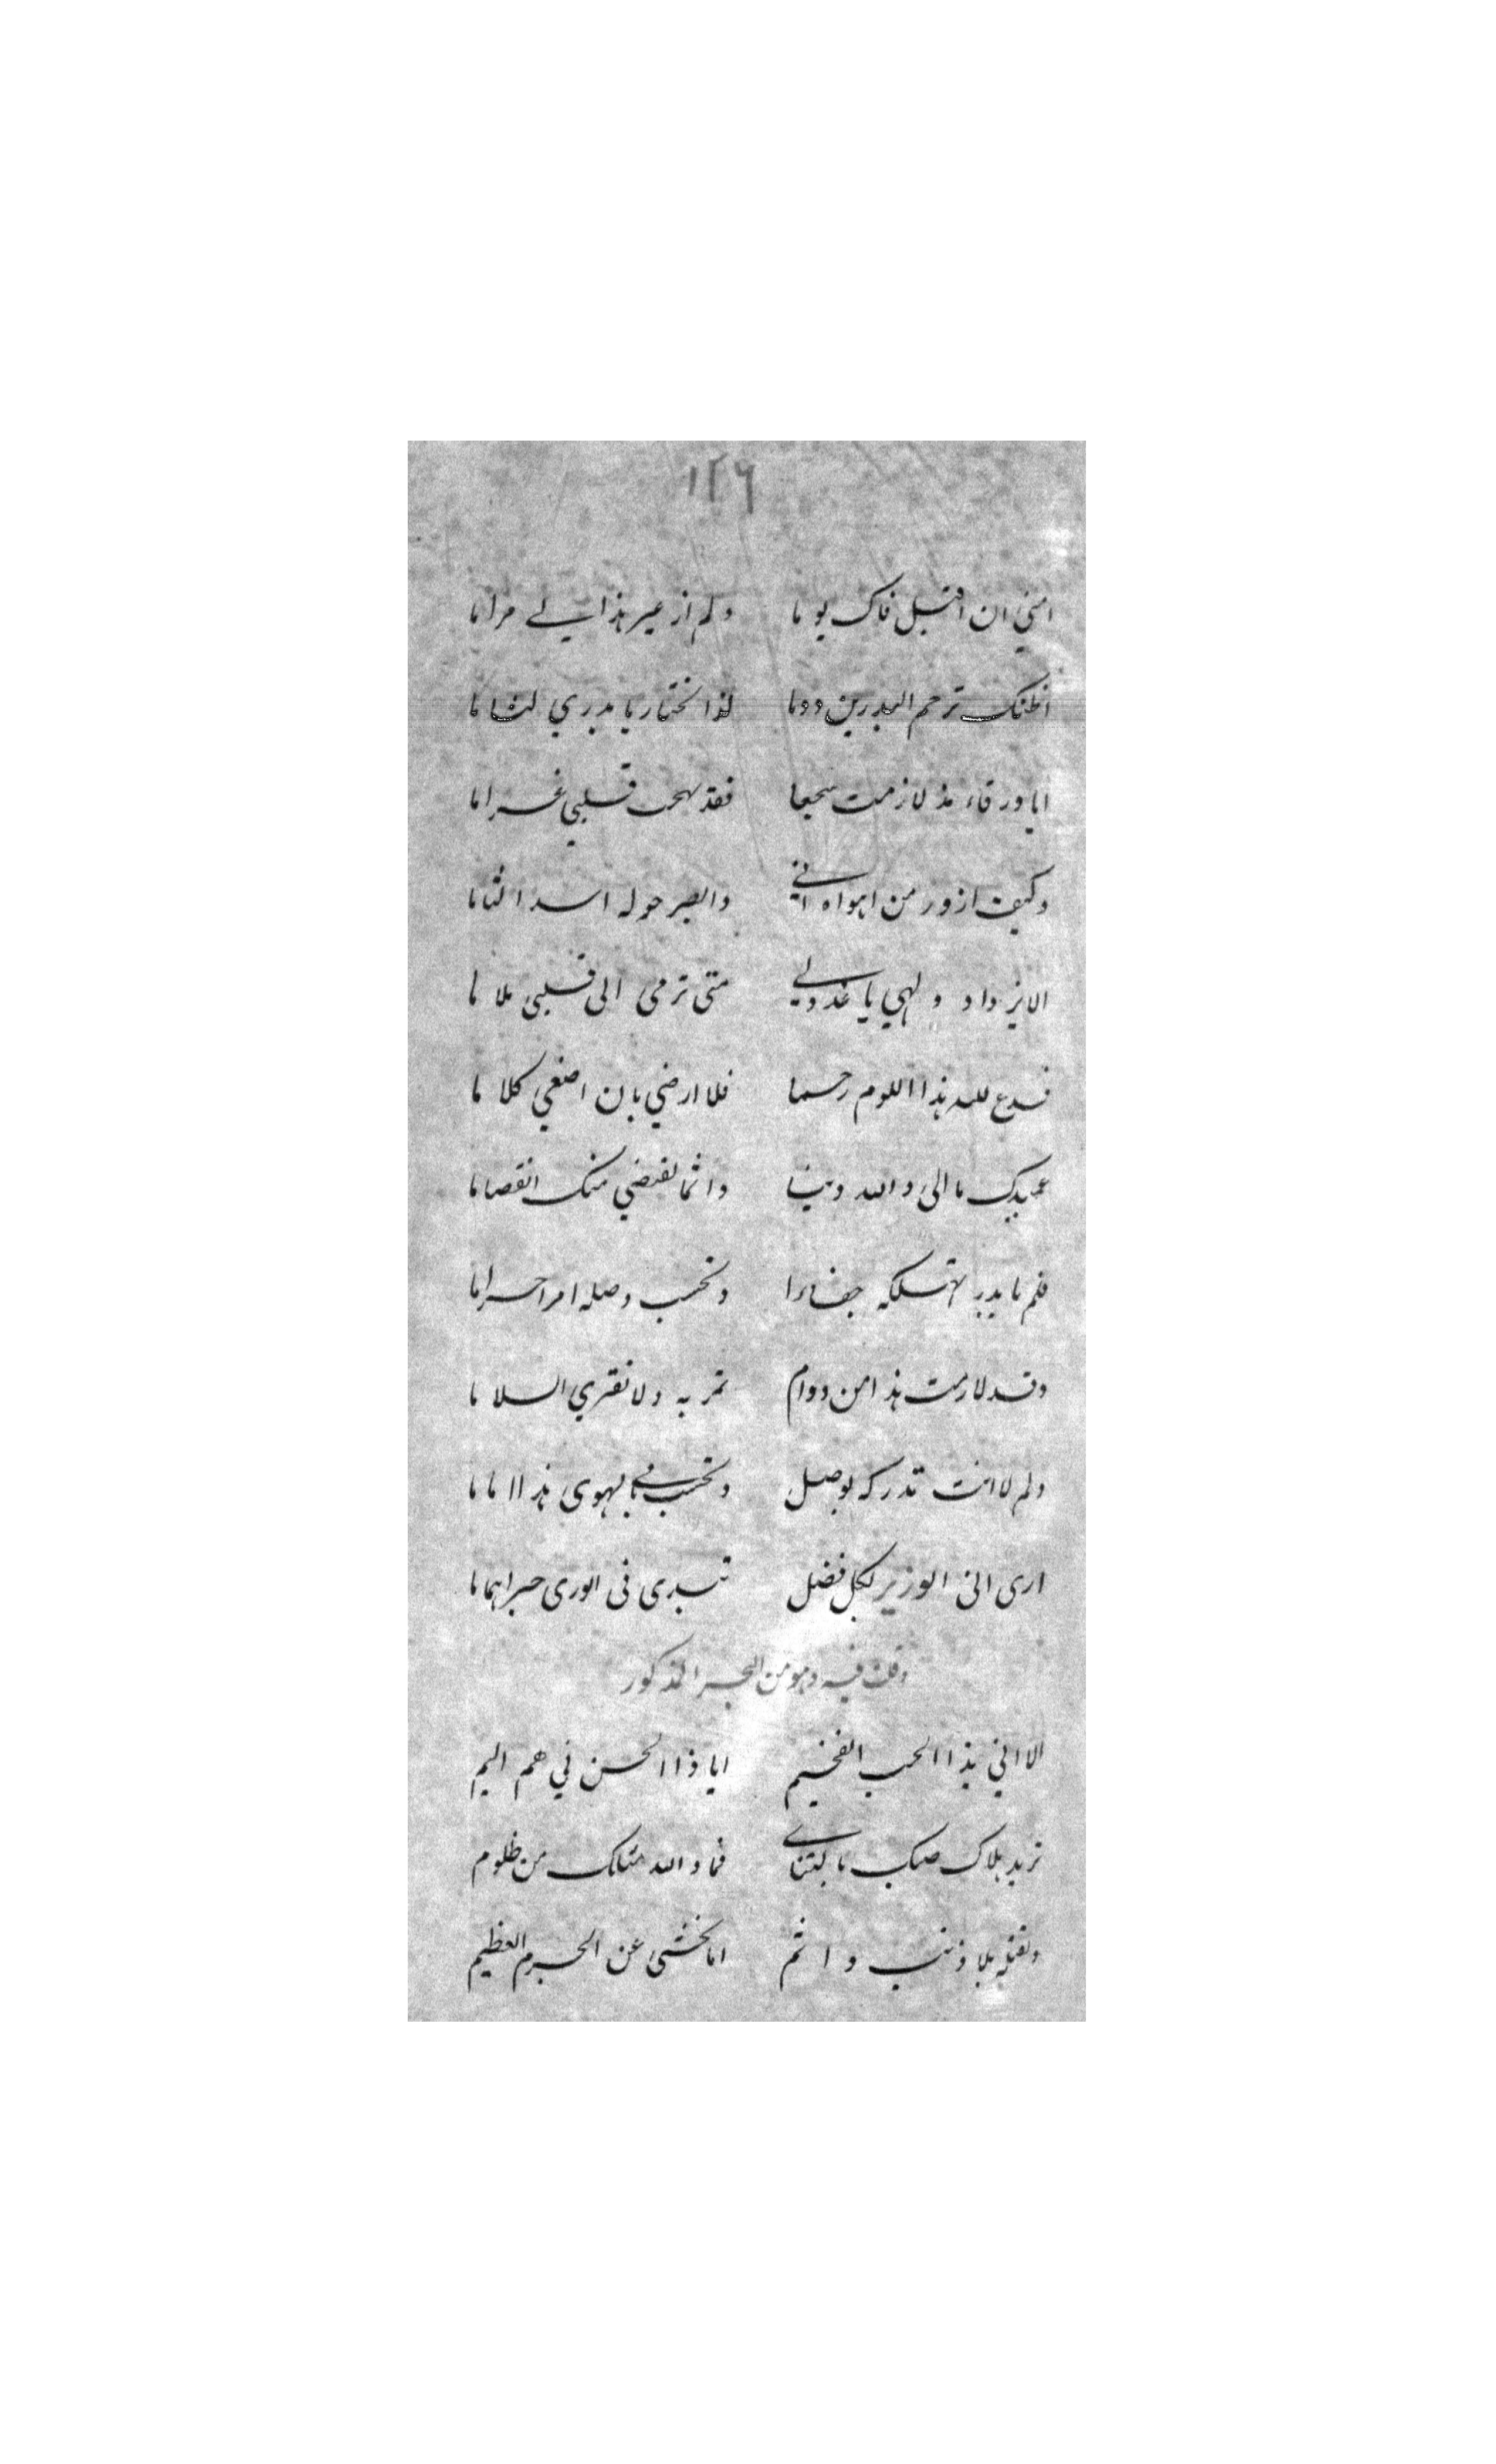 ١٢٦
امني ان اقبل فاك يوما ولم ار غير هذا لي مراما
اظنك ترحم البدرين دوما لذا تختار يا بدري لثاما
ايا ورقاء مذ لازمت سجعا فقد قلبي غراما
وكيف ازور من اهواه اني والصبر حوله اسدا
الا يزداد ولهي يا عذولي متى ترمى الى قلبي ملاما
فدع لله هذا اللوم رحما فلا ارضي بان اصغي كلاما
عميدك ما الى والله ذنبا منك
فلم يا بدر تهلكه جفاءا وتحسب وصله امرا حراما
وقد لازمت هذا من دوام تمر به ولا تقري السلاما
ولم لا انت تدركه بوصل وتحسب يهوى هذا
ارى انى الوزير لكل فضل تبدى فى الورى حبرا هماما
وقلت فيه وهو من البحر المذكور
الا اني بذا الحب الفخيم ايا ذا الحسن في هم اليم
تريد هلاك صبك فما والله مثلك من ظلوم
وتقتله بلا ذنب واثم اما تخشى عن الجرم العظيم